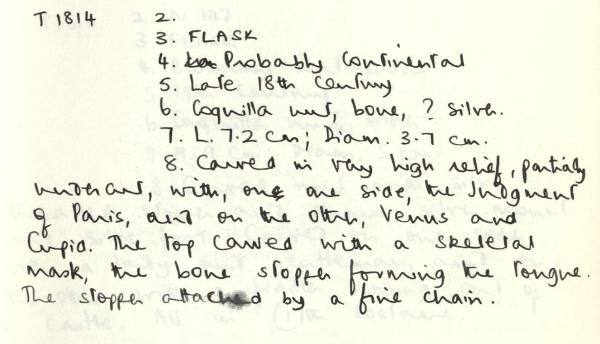 T 1814 2.
3. FLASK
4. Probably Continental
5. Late 18th Century
6. Coquilla nut, bone, ? silver.
7. L. 7.2 cm; Diam. 3.7 cm.
8. Carved in very high relief, partially
undercut, with, one one side, the Judgment
of Paris, and on the other Venus and
Cupid. The top carved with a skeletal
mask, the bone stopper forming the tongue.
The stopper attached by a fine chain.